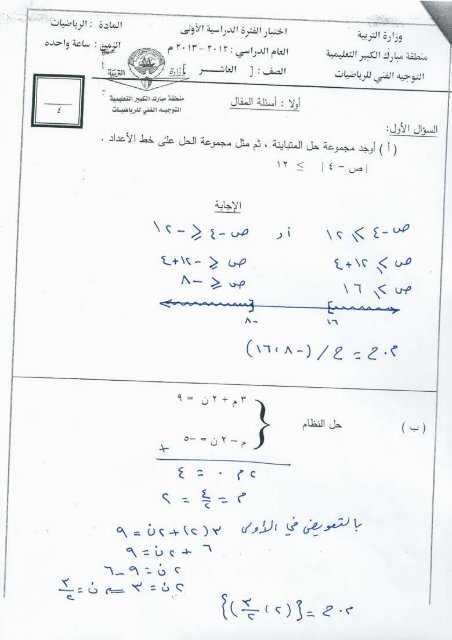 وزارة التربية
منطقة مبارك الكبير التعليمية
التوجيه الفني للرياضيات
اختبار الفترة الدراسية الأولى
العام الدراسي : ٢٠١٢ - ٢٠١٣ م
الصف : [ العاشر ]
المادة : الرياضيات
الزمن : ساعة واحده
وزارة التربية
منطقة مبارك الكبير التعليمية
التوجيه الفني للرياضيات
٤
أولا : أسئلة المقال
السؤال الأول:
( أ ) أوجد مجموعة حل المتباينة ، ثم مثل مجموعة الحل على خط الأعداد .
| ص - ٤ | ≥ ١٢
الإجابة
ص - ٤ ≥ ١٢ أو ص - ٤ ≤ - ١٢
ص ≥ ١٢ + ٤ ص ≤ - ١٢ + ٤
ص ≥ ١٦ ص ≤ - ٨
١٦ - ٨
م . ح = ح / ( - ٨ ، ١٦ )
( ب ) حل النظام
٣ م + ٢ ن = ٩
م - ٢ ن = - ٥
+
٢ م ٠ = ٤
م = ٤/٢ = ٢
بالتعويض في الأولى ٣ (٢) + ٢ ن = ٩
٦ + ٢ ن = ٩
٢ ن = ٩ - ٦
٢ ن = ٣ ⇐ ن = ٣/٢
م . ح = { ( ٢ ، ٣/٢ ) }